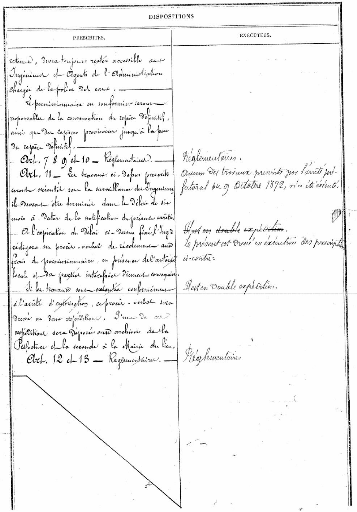 DISPOSITIONS
PRESCRITES.
EXÉCUTÉES.
retenue, devra toujours rester accessible aux
Ingénieurs et Agents de l'Administration
chargée de la police des eaux. —
Le permissionnaire ou son fermier seront
responsable de la conservation du repère définitif,
ainsi que du repère provisoire jusqu'à la pose
du repère définitif.
Art. 7, 8, 9 et 10 — Réglementaires.
Art. 11 — Les travaux ci-dessus prescrits
seront exécutés sous la surveillance des Ingénieurs;
ils devront être terminés dans le délai de six
mois à dater de la notification du présent arrêté.
A l'expiration du délai
rédigera un procès-verbal de récolement aux
frais du permissionnaire, en présence de l'autorité
locale et des parties intéressées dûment convoquées.
Si les travaux sont exécutés conformément
à l'arrêté d'autorisation, ce procès-verbal sera
dressé en deux expéditions. L'une de ces
expéditions sera déposée aux archives de la
Préfecture et la seconde à la Mairie du lieu.
Art. 12 et 13 — Réglementaires. —
Réglementaires.
Aucun des travaux prescrits par l'arrêté pré-
fectoral du 9 Octobre 1892, n'a été exécuté.
est en double expédition.
Le présent est dressé en exécution des prescriptions
ci-contre.
est en double expédition.
Réglementaires